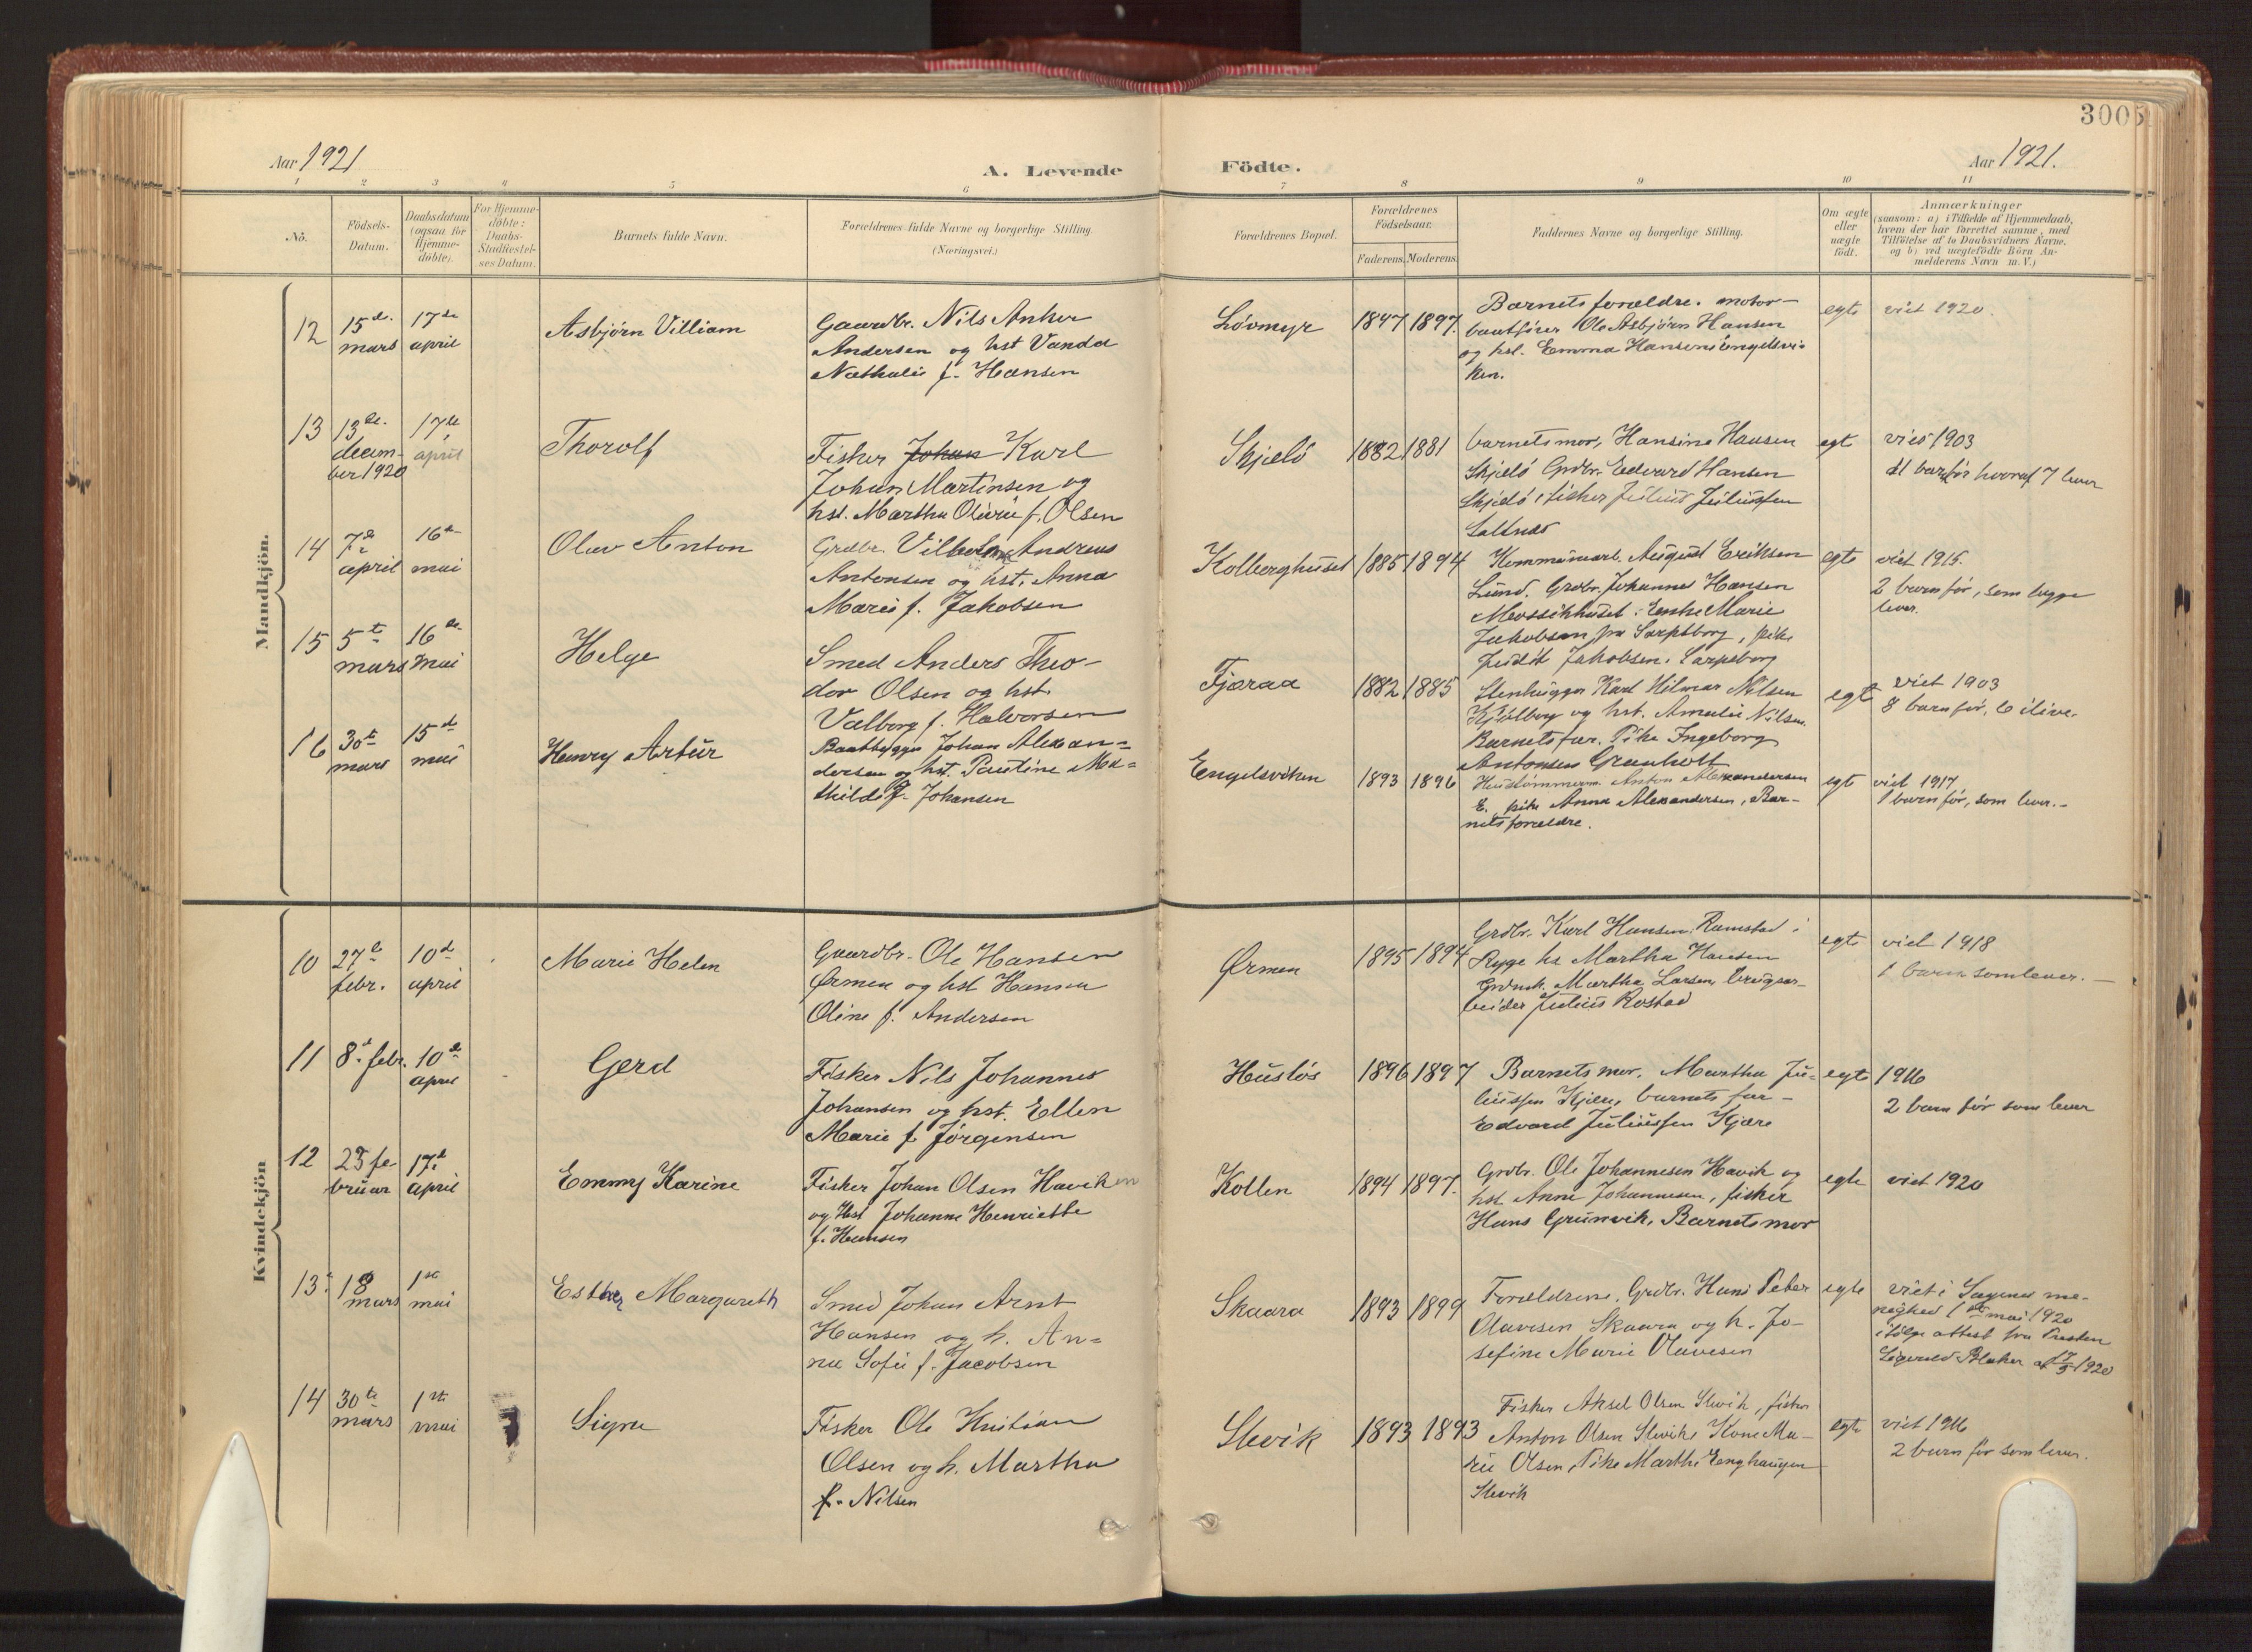 3005
Aar 1921
A. Levende
Födte.
Aar 1921.
1 2 3 4 5 6 7 8 9 10 11
No.
Födsels-
Datum.
Daabsdatum
(ogsaa for
Hjemme-
döbte).
For Hjemme-
döbte:
Daabs-
Stadfæstel-
ses Datum.
Barnets fulde Navn.
Forældrenes fulde Navne og borgerlige Stilling.
(Næringsvei.)
Forældrenes Bopæl.
Forældrenes
Födselsaar.
Faderens. Moderens.
Faddernes Navne og borgerlige Stilling.
Om ægte
eller
uægte
födt.
Anmærkninger
(saasom: a) i Tilfælde af Hjemmedaab,
hvem der har forrettet samme, med
Tilföielse af to Daabsvidners Navne,
og b) ved uægtefödte Börn An-
melderens Navn m. V.)
Mandkjön.
12
15de
mars
17de
april
Asbjørn Villiam
Gaardbr. Nils Anker
Andersen og hst Vanda
Nathalie f. Hansen
Løvmyr
1847 1897.
Barnets forældre. motor-
baatfører Ole Asbjørn Hansen
og hst. Emma Hansens Engelsvi-
ken.
egte
viet 1920.
13
13de
decem-
ber 1920
17de
april
Thorolf
Fisker Johan Karl
Johan Martinsen og
hst. Martha Olivie f. Olsen
Skjelø
1882 1881
barnets mor, Hansine Hansen
Skjelø Grdbr. Edvard Hansen
Skjelø, fisker Julius Juliussen
Saltnes
egt
viet 1903
11 barn før hvoraf 7 lever
14
7de
april
16de
mai
Olav Anton
Grdbr. Vilhelm Andreas
Antonsen og hst. Anna
Marie f. Jakobsen
Kolberghuset
1885 1894
Kommunearb. August Eriksen
Lund. Grdbr. Johannes Hansen
Mossikhuset. Enke Marie
Jakobsen fra Sarpsborg, pike
Judit Jakobsen. Sarpsborg
egte
viet 1915.
2 barn før, som begge
lever.
15
5te
mars
16de
mai
Helge
Smed Anders Theo-
dor Olsen og hst.
Valborg f. Halvorsen
Fjæraa
1882 1885
Stenhugger Karl Hilmar Nilsen
Kjølberg og hst. Amalie Nilsen.
Barnets far. Pike Ingeborg
Antonsen Grønholt
egte
viet 1903
8 barn før, 6 ilive.
16
30te
mars
15de
mai
Henry Artur
Baatbygger Johan Alexan-
dersen og hst. Pauline Ma-
thilde f. Johansen
Engelsviken
1893 1896
Hustømmerm. Anton Alexandersen
E. pike Anna Alexandersen, Bar-
nets forældre.
egte
viet 1917
1 barn før, som lever.
Kvindekjön
10
27de
febr.
10de
april
Marie Helen
Gaardbr. Ole Hansen
Ørmen og hst Hanna
Oline f. Andersen
Ørmen
1895 1894
Grdbr. Karl Hansen. Ramstad i
Rygge hs Martha Hansen
Grdmk. Martha Larsen, brugsar-
beider Julius Rostad
egte
viet 1918
1 barn som lever.
11
8de febr.
10de
april
Gerd
Fisker Nils Johannes
Johansen og hst. Ellen
Marie f. Jørgensen
Husløs
1896 1897
Barnets mor, Martha Ju-
liussen Kjære, barnets far -
Edvard Juliussen Kjære
egte
1916
2 barn før som lever
12
25 fe-
bruar
17de
april
Emmy Karine
Fisker Johan Olsen Haviken
og Hst Johanne Henriette
f. Hansen
Kollen
1894 1897.
Grdbr. Ole Johannesen Havik og
hst Anne Johannesen, fisker
Hans Grunvik, Barnets mor
egte
viet 1920
13.
18
mars
1ste
mai
Esther Margareth
Smed Johan Arnt
Hansen og h. An-
na Sofie f. Jacobsen
Skaara
1893 1899
Forældrene, Grdbr. Hans Peter
Olavesen Skaara og h. Jo-
sefine Marie Olavesen
egte
viet i Sagene me-
nighed 1ste mai 1920
ifølge attest fra Presten
Sigurd Blaker af 17/5 1920
14
30te
mars
1ste
mai
Signe
Fisker Ole Kristian
Olsen og h. Martha
f. Nilsen
Slevik
1893 1893
Fisker Aksel Olsen Slevik, fisker
Anton Olsen Slevik, Kone Ma-
rie Olsen, Pike Marthe Enghaugen
Slevik
egte
viet 1916
2 barn før som lever.